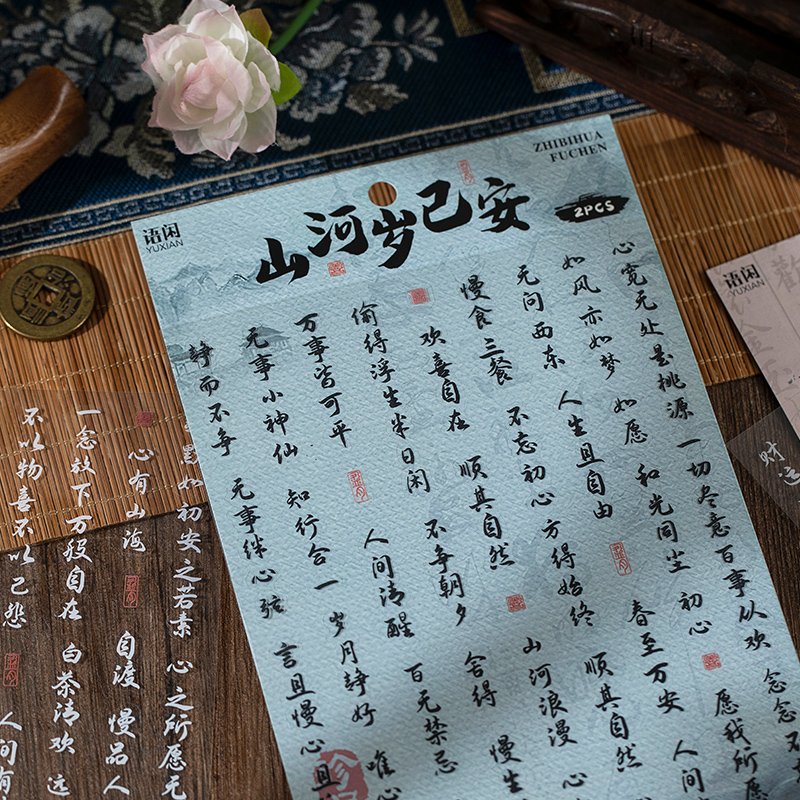 ZHIBIHUA
FUCHEN
语闲
YUXIAN
山河岁已安
2PCS
心宽无处是桃源 一切尽意百事从欢 念念不
如风亦如梦 如愿 和光同尘 初心 愿我所愿
无问西东 人生且自由 春至万安 人间
慢食三餐 不忘初心方得始终 顺其自然
欢喜自在 顺其自然 山河浪漫 心
偷得浮生半日闲 不争朝夕 舍得 慢生
万事皆可平 人间清醒 百无禁忌
无事小神仙 知行合一 岁月静好 唯心
静而不争 无事绊心弦 言且慢心且
语闲
YUXIAN
财运
如初安之若素 心之所愿无
心有山海 自渡 慢品人
一念放下万般自在 白茶清欢 远
不以物喜不以己悲 人间有